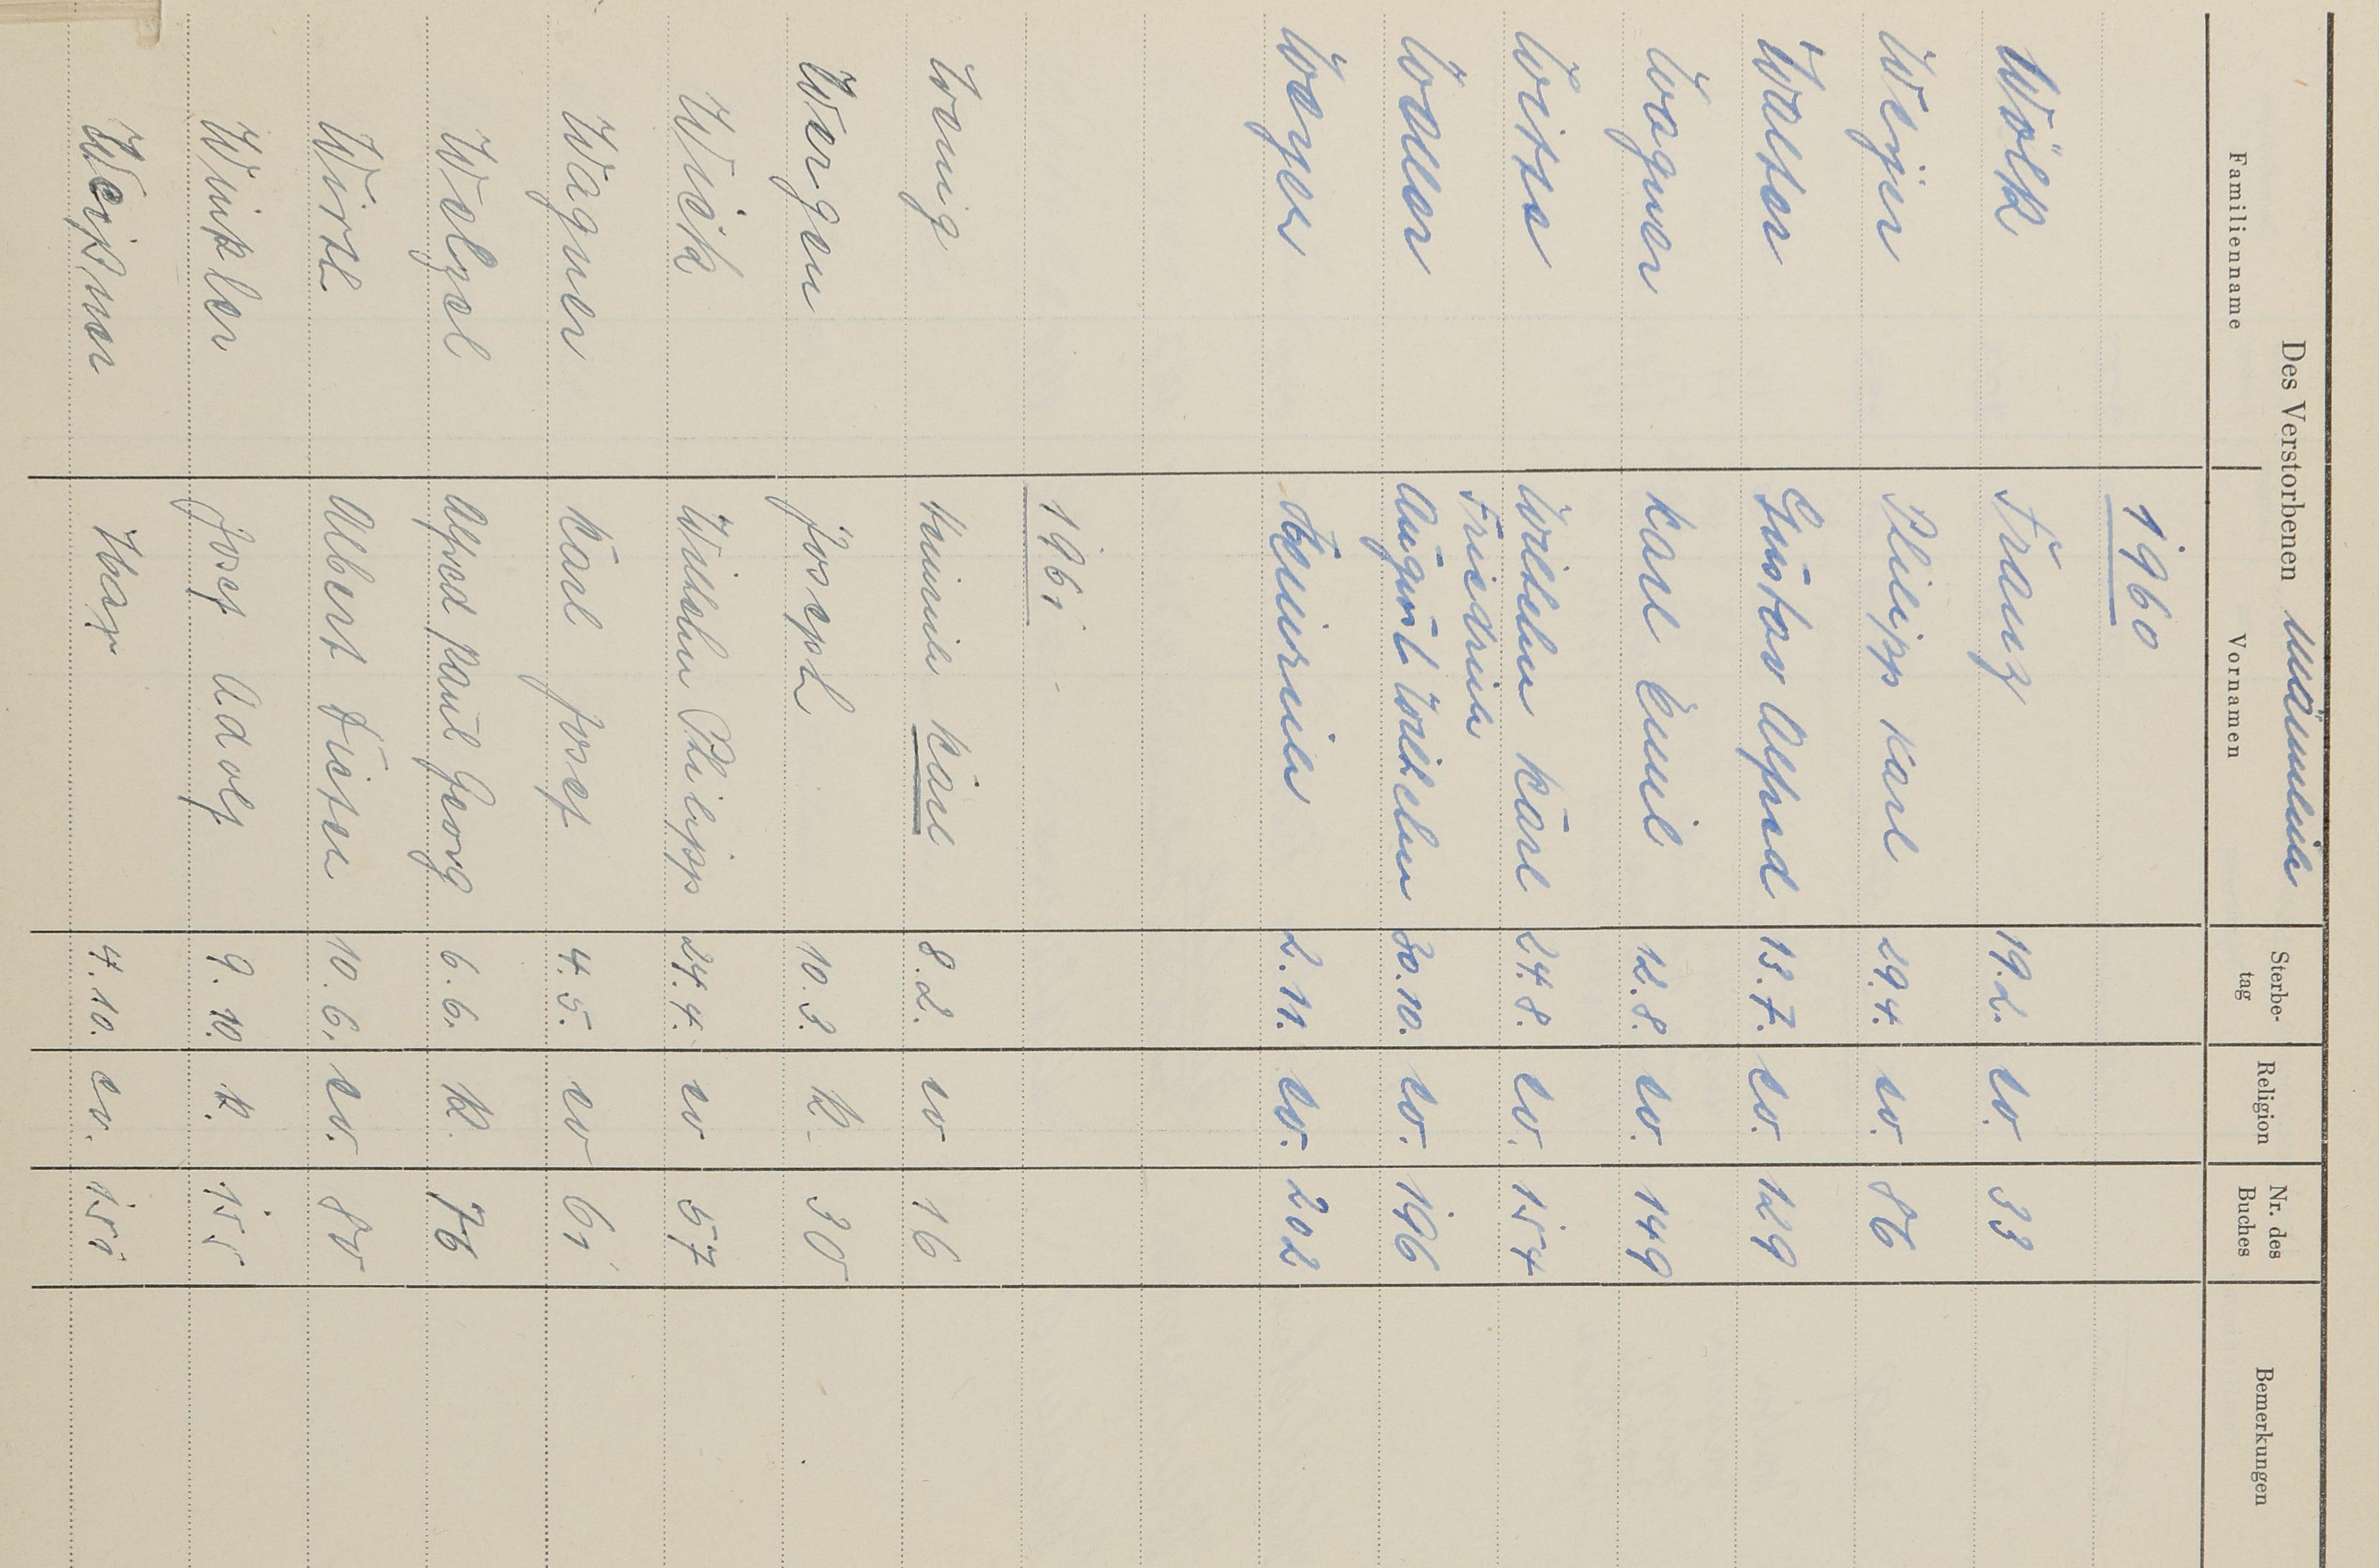 Des Verstorbenen männlich
Familienname Vornamen Sterbe-tag Religion Nr. des Buches Bemerkungen
1960
Wölk Franz 19.2. ev. 33
Philipp Karl 29.4. ev. 86
Walter Gustav Alfred 13.7. ev. 129
Wagner Karl Emil 12.8. ev. 149
Witte Wilhelm Karl 24.8. ev. 154
Friedrich
August Wilhelm 30.10. ev. 196
Heinrich 2.11. ev. 202
1961
Heinrich Karl 8.2. ev 16
Joseph 10.3. k. 30
Wick Wilhelm Philipp 24.4. ev 57
Wagner Karl Josef 4.5. ev 61
Alfred Paul Georg 6.6. k. 76
Wirth Albert 10.6. ev. 80
Winkler Josef Adolf 9.10. k. 155
Max 4.10. ev. 151